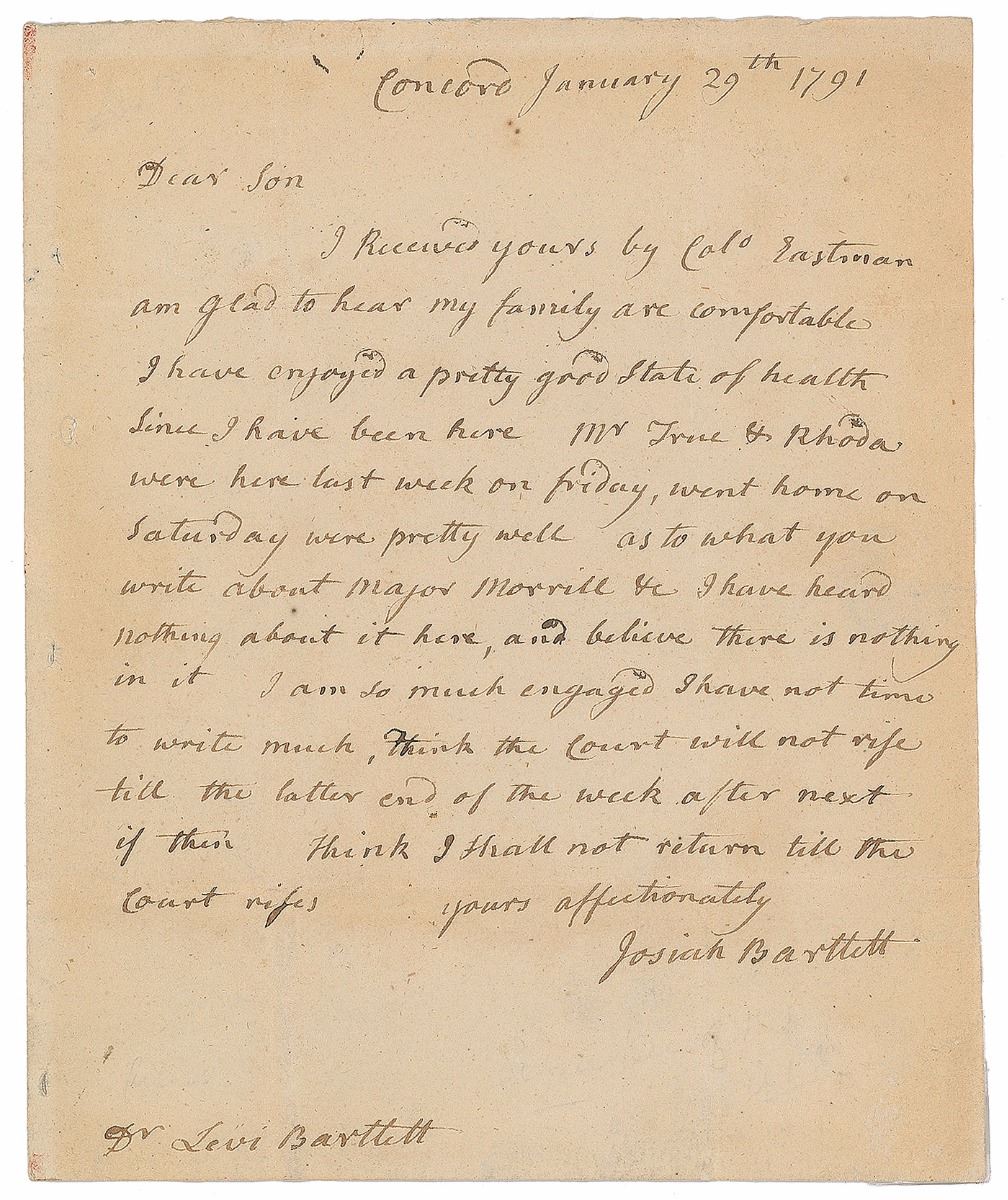 Concord January 29th 1791
Dear Son
I Received yours by Colo Eastman
am glad to hear my family are comfortable
I have enjoyed a pretty good State of health
Since I have been here Mr True & Rhoda
were here last week on friday, went home on
Saturday were pretty well as to what you
write about Major Morrill &c I have heard
nothing about it here, and believe there is nothing
in it I am so much engaged I have not time
to write much, think the Court will not rise
till the latter end of the week after next
if then think I Shall not return till the
Court rises yours affectionately
Josiah Bartlett
Dr Levi Bartlett